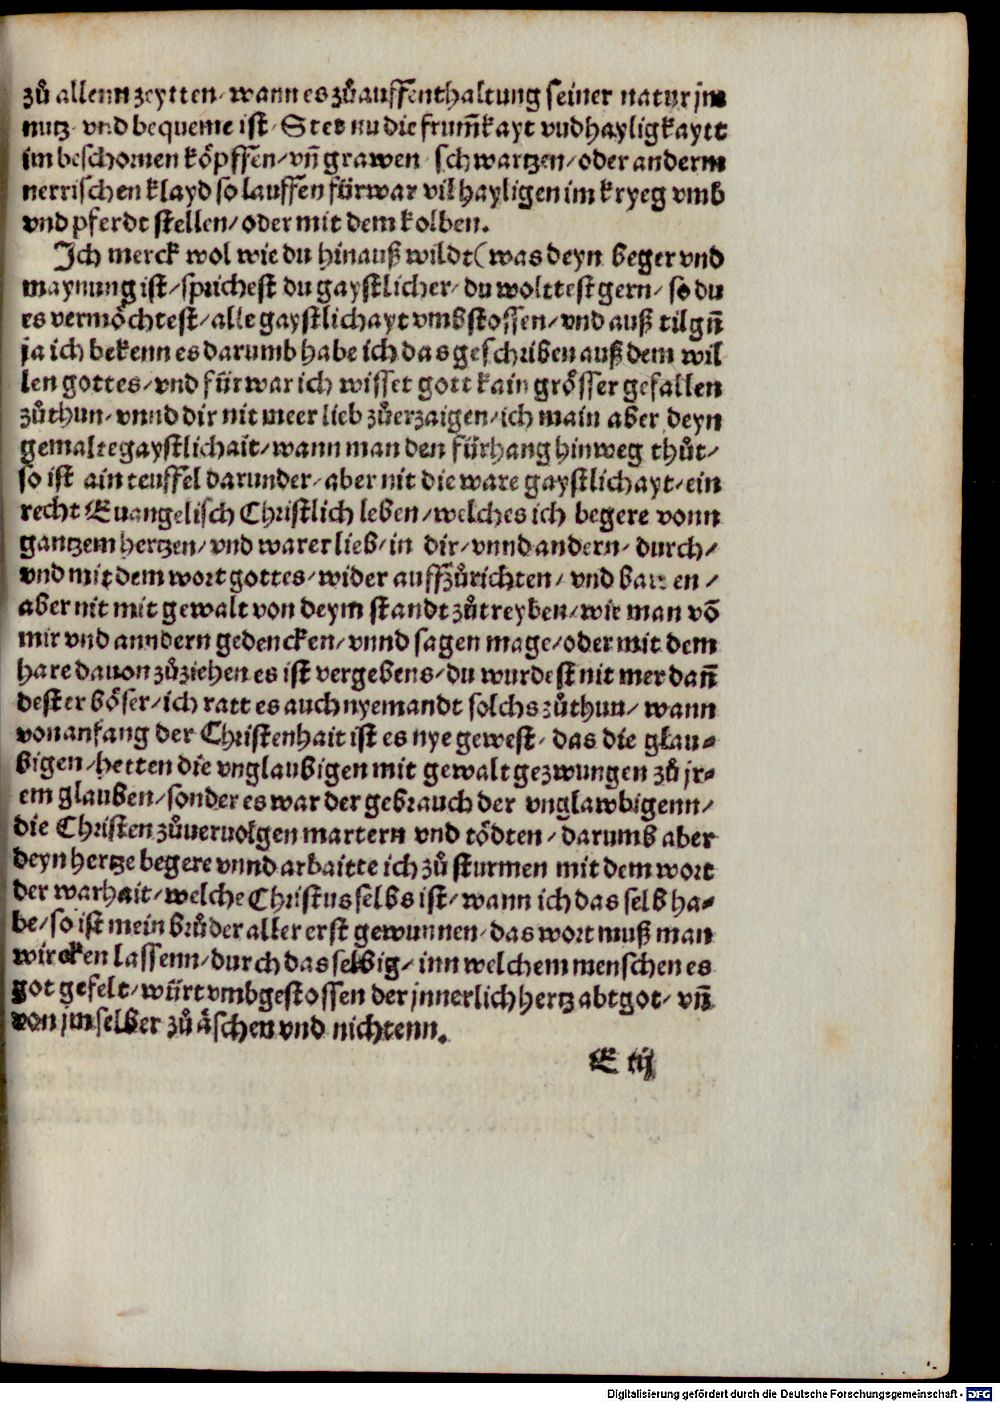 zů allenn zeytten/ wann es zů auffenthaltung seiner natur jm
nutz vnd bequeme ist/ Stet nu die frum̄kayt vnd hayligkaytt
im beschornen köpffen/ vn̄ grawen schwartzen/ oder anderm
nerrischen klayd so lauffen fürwar vil hayligen im kryeg vmb
vnd pferdt stellen/ oder mit dem kolben.
Ich merck wol wie du hinauß wildt (was deyn beger vnd
maynung ist/ sprichest du gaystlicher/ du wolttest gern/ so du
es vermöchtest/ alle gaystlichayt vmbstossen/ vnd auß tilgn̄
ja ich bekenn es darumb habe ich das geschriben auß dem wil
len gottes/ vnd fürwar ich wisset gott kain grösser gefallen
zůthun/ vnnd dir nit meer lieb zůerzaigen/ ich main aber deyn
gemalte gaystlichait/ wann man den fürhang hinweg thůt/
so ist ain teuffel darunder/ aber nit die ware gaystlichayt/ ein
recht Euangelisch Christlich leben/ welches ich begere vonn
gantzem hertzen/ vnd warer lieb/ in dir/ vnnd andern/ durch/
vnd mit dem wort gottes/ wider auffzůrichten/ vnd bawen/
aber nit mit gewalt von deym standt zůtreyben/ wie man vō
mir vnd anndern gedencken/ vnnd sagen mage/ oder mit dem
hare dauon zůziehen es ist vergebens/ du wurdest nit mer dan̄
dester böser/ ich ratt es auch nyemandt solchs zůthun/ wann
von anfang der Christenhait ist es nye gewest/ das die glau-
bigen/ hetten die vnglaubigen mit gewalt gezwungen zů jr-
em glauben/ sonder es war der gebrauch der vnglawbigenn/
die Christen zůueruolgen martern vnd tödten/ darumb aber
deyn hertze begere vnnd arbaitte ich zů sturmen mit dem wort
der warhait/ welche Christus selbs ist/ wann ich das selb ha-
be/ so ist mein brůder aller erst gewunnen/ das wort muß man
wircken lassenn/ durch das selbig/ inn welchem menschen es
got gefelt/ würt vmbgestossen der jnnerlich hertz abtgot/ vn̄
von jm selber zů äschen vnd nichtenn.
E iij
Digitalisierung gefördert durch die Deutsche Forschungsgemeinschaft - DFG